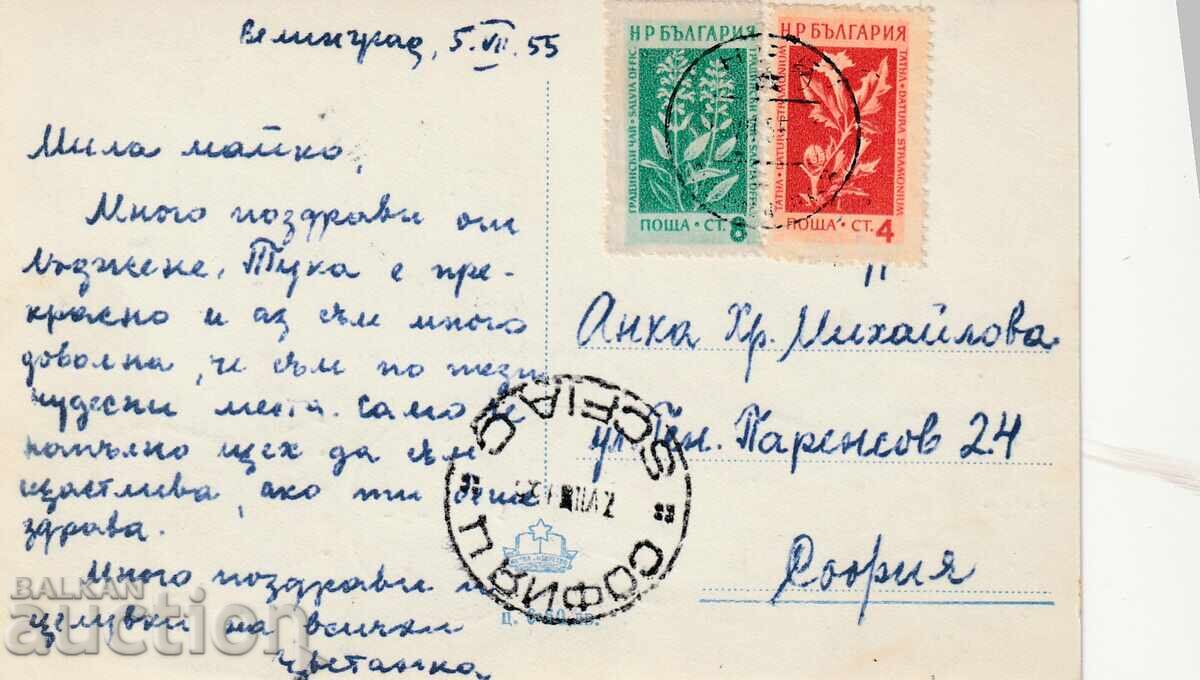 Велинград, 5.VII.55
Мила майко,
Много поздрави от
Лъджене. Тука е пре-
красно и аз съм много
доволна, че съм по тези
чудесни места. Само че
напълно щех да съм
щастлива, ако ти беше
здрава.
Много поздрави и
целувки на всички
Цветанка
НР БЪЛГАРИЯ
ГРАДИНСКИ ЧАЙ · SALVIA OFFIC.
ПОЩА · СТ. 8
НР БЪЛГАРИЯ
ТАТУЛ · DATURA STRAMONIUM
ПОЩА · СТ. 4
Анка Хр. Михайлова
ул. Ген. Паренсов 24
София
SOFIA C
СОФИЯ Ц
BALKAN
auction